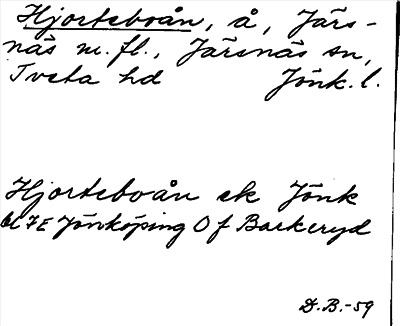 Hjortsboån, å, Järs-
näs m. fl., Järsnäs sn,
Tveta hd Jönk. l.
Hjortsboån ek Jönk
bl 7E Jönköping Of Barkeryd
D.B.-59